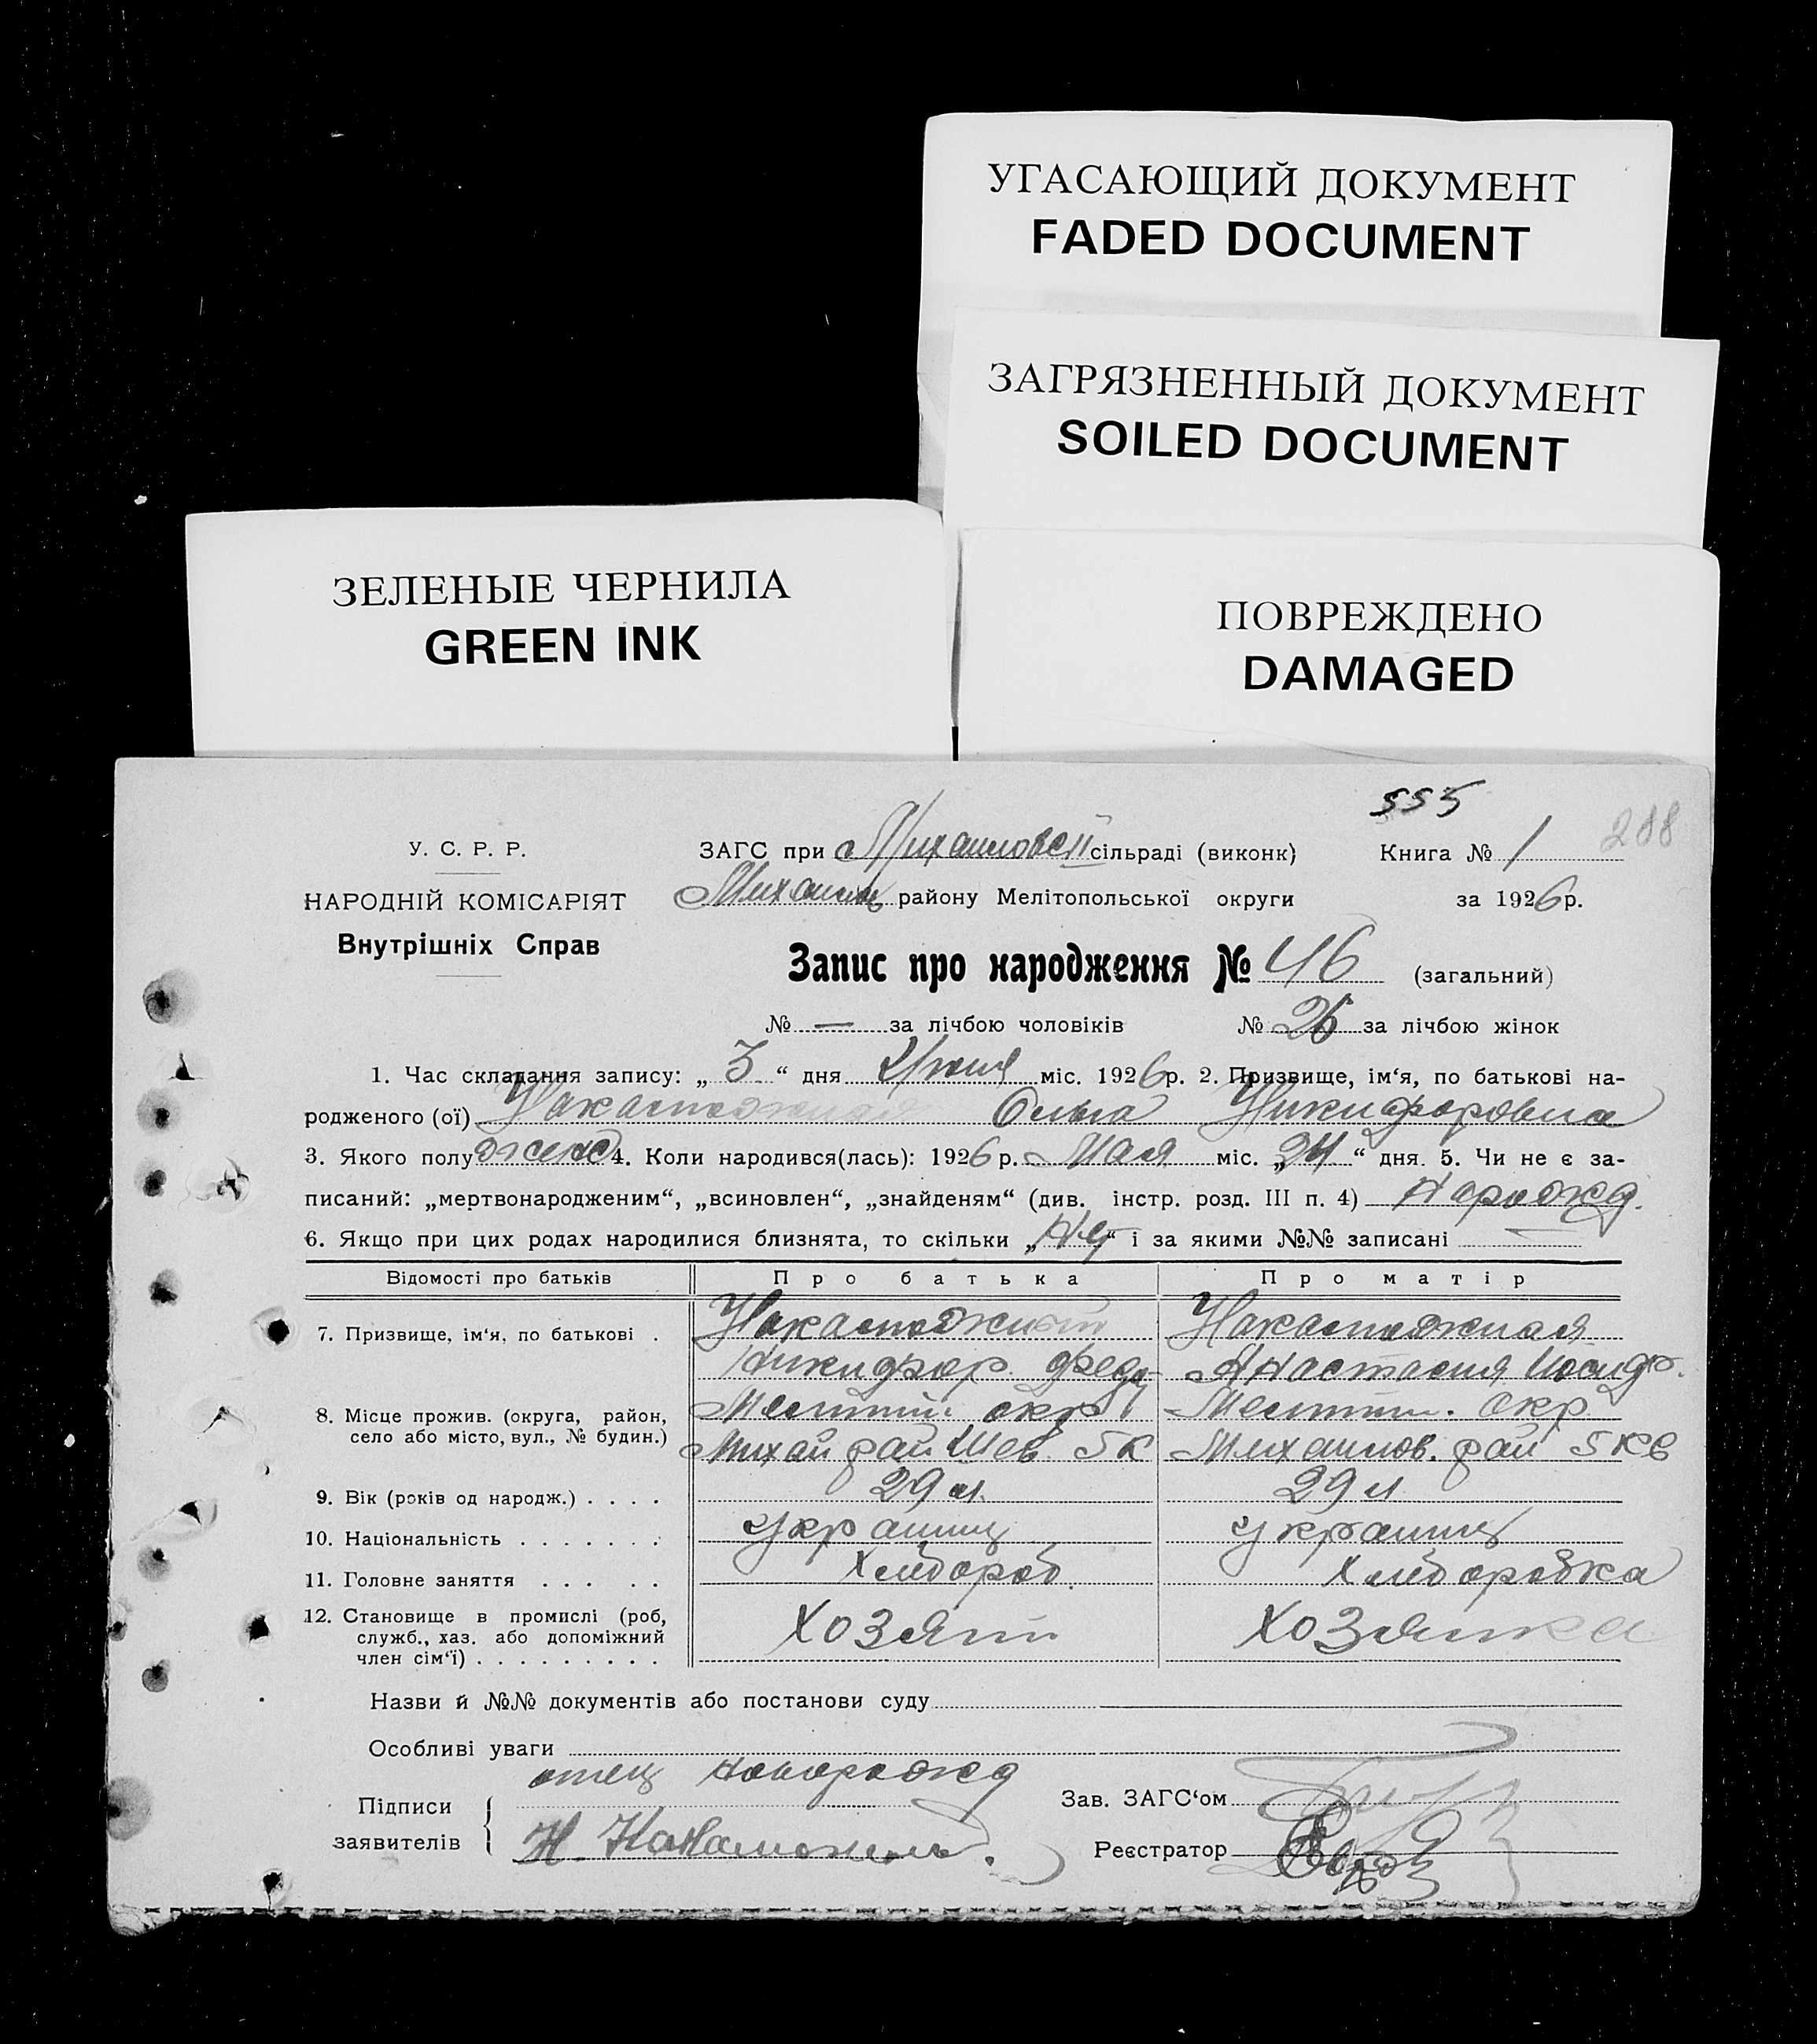 УГАСАЮЩИЙ ДОКУМЕНТ
FADED DOCUMENT
ЗАГРЯЗНЕННЫЙ ДОКУМЕНТ
SOILED DOCUMENT
ЗЕЛЕНЫЕ ЧЕРНИЛА
GREEN INK
ПОВРЕЖДЕНО
DAMAGED
555
288
У. С. Р. Р.
НАРОДНІЙ КОМІСАРІЯТ
Внутрішніх Справ
ЗАГС при Михайловск II сільраді (виконк) Книга № 1
району Мелітопольської округи за 1926 р.
Запис про народження № 46 (загальний)
№ — за лічбою чоловіків № 26 за лічбою жінок
1. Час складання запису: „ 3 “ дня Июня міс. 1926 р. 2. Призвище, ім‘я, по батькові на-
родженого (ої) Ольга Никифоровна
3. Якого полу женс 4. Коли народився(лась): 1926 р. Мая міс. „24“ дня. 5. Чи не є за-
писаний: „мертвонародженим“, „всиновлен“, „знайденям“ (див. інстр. розд. III п. 4) Нарожд.
6. Якщо при цих родах народилися близнята, то скільки „ “ і за якими №№ записані —
Відомості про батьків Про батька Про матір
7. Призвище, ім‘я, по батькові .
Никифор Федо- Анастасия Иосиф.
8. Місце прожив. (округа, район, Мелитп. окр Мелитп. Окр.
село або місто, вул., № будин.) Михай рай Шев. 5 к Михайлов. рай 5 кв
9. Вік (років од народж.) . . . . 29 л. 29 л
10. Національність . . . . . . . Украинц Украинц
11. Головне заняття . . . . . Хлебороб. Хлеборобка
12. Становище в промислі (роб,
служб., хаз. або допоміжний
член сім‘ї) . . . . . . . . . Хозяин Хозяйка
Назви й №№ документів або постанови суду
Особливі уваги
отец новорожд
Підписи
заявителів
Н.
Зав. ЗАГС‘ом
Реєстратор